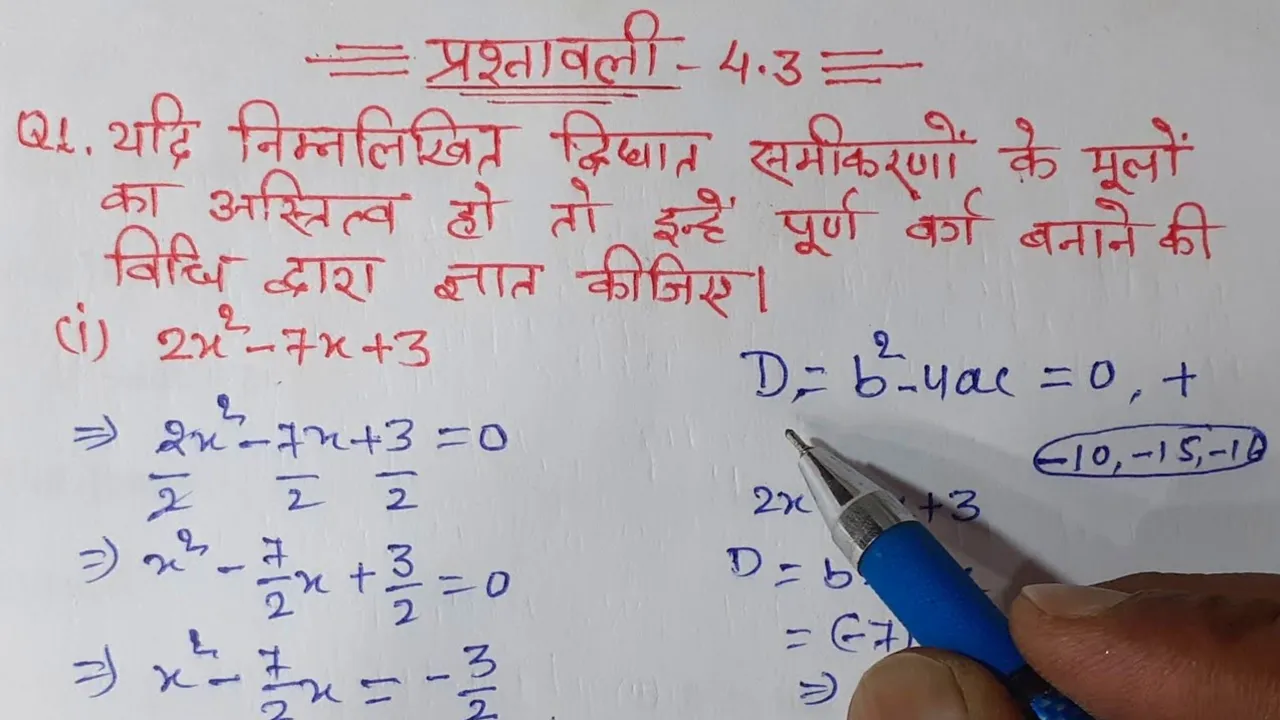 प्रश्तावली - 4.3
Q1. यदि निम्नलिखित द्विघात समीकरणों के मूलों
का अस्तित्व हो तो इन्हें पूर्ण वर्ग बनाने की
विधि द्वारा ज्ञात कीजिए।
(i) 2x² - 7x + 3
⇒ 2x²/2 - 7x/2 + 3/2 = 0
⇒ x² - 7/2 x + 3/2 = 0
⇒ x² - 7/2 x = - 3/2
D = b² - 4ac = 0, +
-10, -15, -16
2x + 3
D = b
= (-7)
⇒